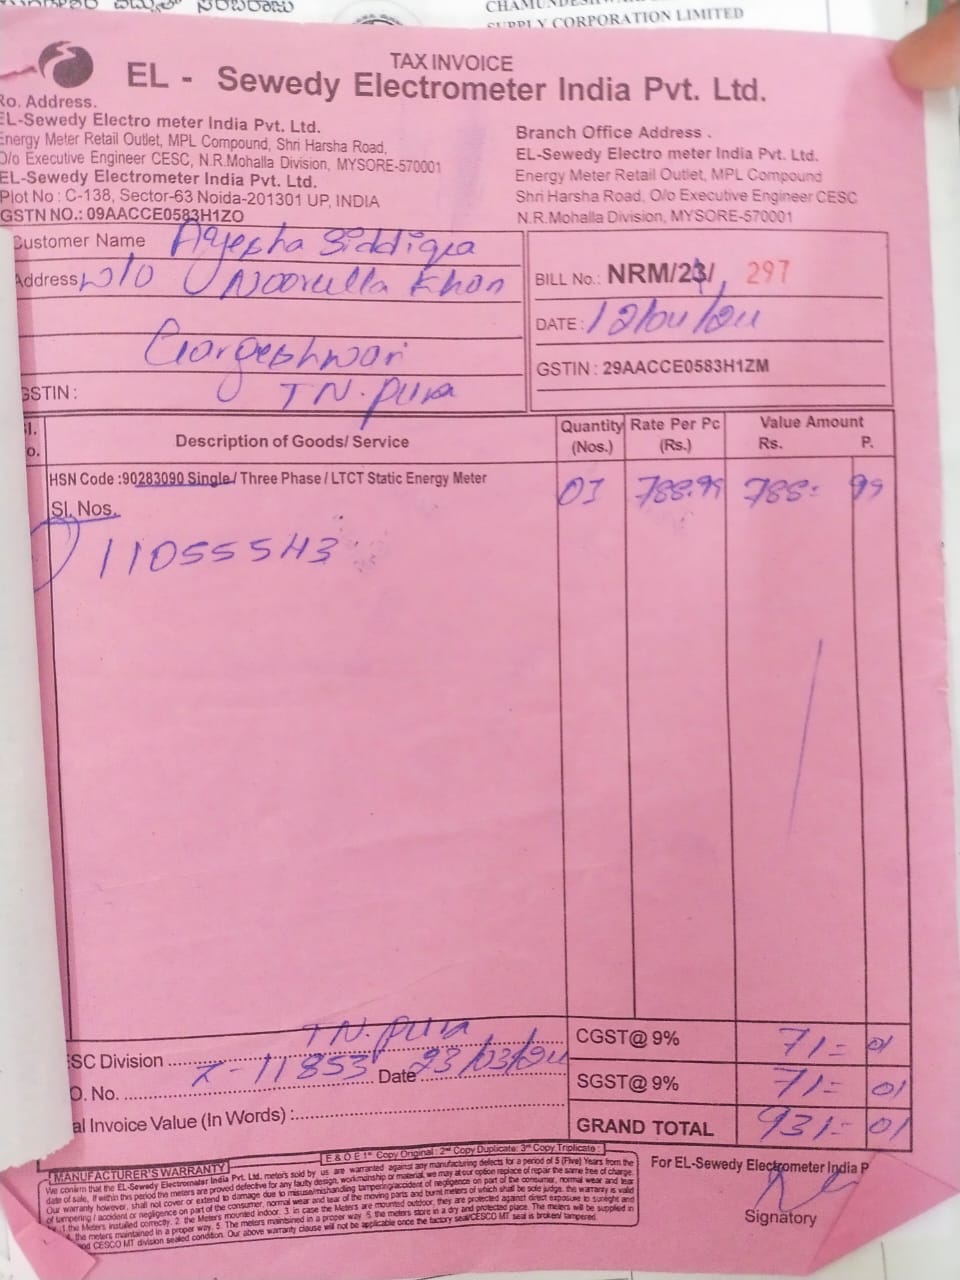 ವಿದ್ಯುತ್ ಸರಬರಾಜು
SUPPLY CORPORATION LIMITED
TAX INVOICE
EL - Sewedy Electrometer India Pvt. Ltd.
Ro. Address.
EL-Sewedy Electro meter India Pvt. Ltd.
Energy Meter Retail Outlet, MPL Compound, Shri Harsha Road,
O/o Executive Engineer CESC, N.R.Mohalla Division, MYSORE-570001
EL-Sewedy Electrometer India Pvt. Ltd.
Plot No : C-138, Sector-63 Noida-201301 UP, INDIA
GSTN NO.: 09AACCE0583H1ZO
Branch Office Address .
EL-Sewedy Electro meter India Pvt. Ltd.
Energy Meter Retail Outlet, MPL Compound
Shri Harsha Road, O/o Executive Engineer CESC
N.R.Mohalla Division, MYSORE-570001
Customer Name Ayesha Siddiqua
Address W/O Noorulla Khan
Gargeshwari
GSTIN : TN.Pura
BILL No.: NRM/23/ 297
DATE : 12/04/24
GSTIN : 29AACCE0583H1ZM
Sl. No. Description of Goods/ Service Quantity (Nos.) Rate Per Pc (Rs.) Value Amount Rs. P.
HSN Code :90283090 Single / Three Phase / LTCT Static Energy Meter 01 788.99 788- 99
Sl. Nos.
11055543
TN.Pura
SC Division
O. No. 7-11853 Date 23/03/24
al Invoice Value (In Words) :
CGST@ 9% 71= 01
SGST@ 9% 71= 01
GRAND TOTAL 931= 01
E & O E 1st Copy Original : 2nd Copy Duplicate: 3rd Copy Triplicate :
MANUFACTURER'S WARRANTY
We confirm that the EL-Sewedy Electrometer India Pvt. Ltd. meters sold by us are warranted against any manufacturing defects for a period of 5 (Five) Years from the
date of sale, If within this period the meters are proved defective for any faulty design, workmanship or material, we may at our option replace of repair the same free of charge.
Our warranty however, shall not cover or extend to damage due to misuse/mishandling tampering/accident of negligence on part of the consumer, normal wear and tear
of tampering / accident or negligence on part of the consumer, normal wear and tear of the moving parts and burnt meters of which shall be sole judge, the warranty is valid
1.the Meters installed correctly. 2. the Meters mounted indoor. 3. in case the Meters are mounted outdoor, they are protected against direct exposure to sunlight and
4. the meters maintained in a proper way. 5. the meters store in a dry and protected place. The meters will be supplied in
CESCO MT division sealed condition. Our above warranty clause will not be applicable once the factory seal/CESCO MT seal is broken/ tampered.
For EL-Sewedy Electrometer India P
Signatory